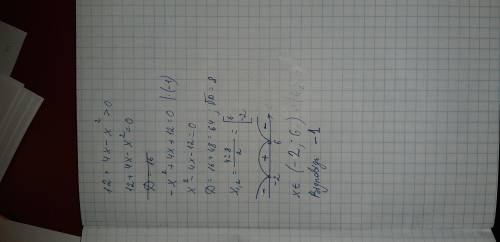 12 + 4x - x² > 0
12 + 4x - x² = 0
D = 16
-x² + 4x + 12 = 0 | · (-1)
x² - 4x - 12 = 0
D = 16 + 48 = 64, √D = 8
x₁,₂ = (4±8)/2 = [6 -2
- + -
-2 6
x ∈ (-2; 6)
-1